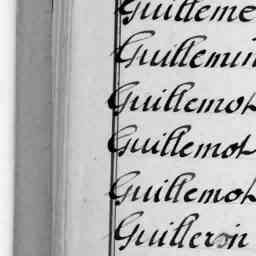 Guilleme
Guillemin
Guillemot
Guillemot
Guillemot
Guilleroin